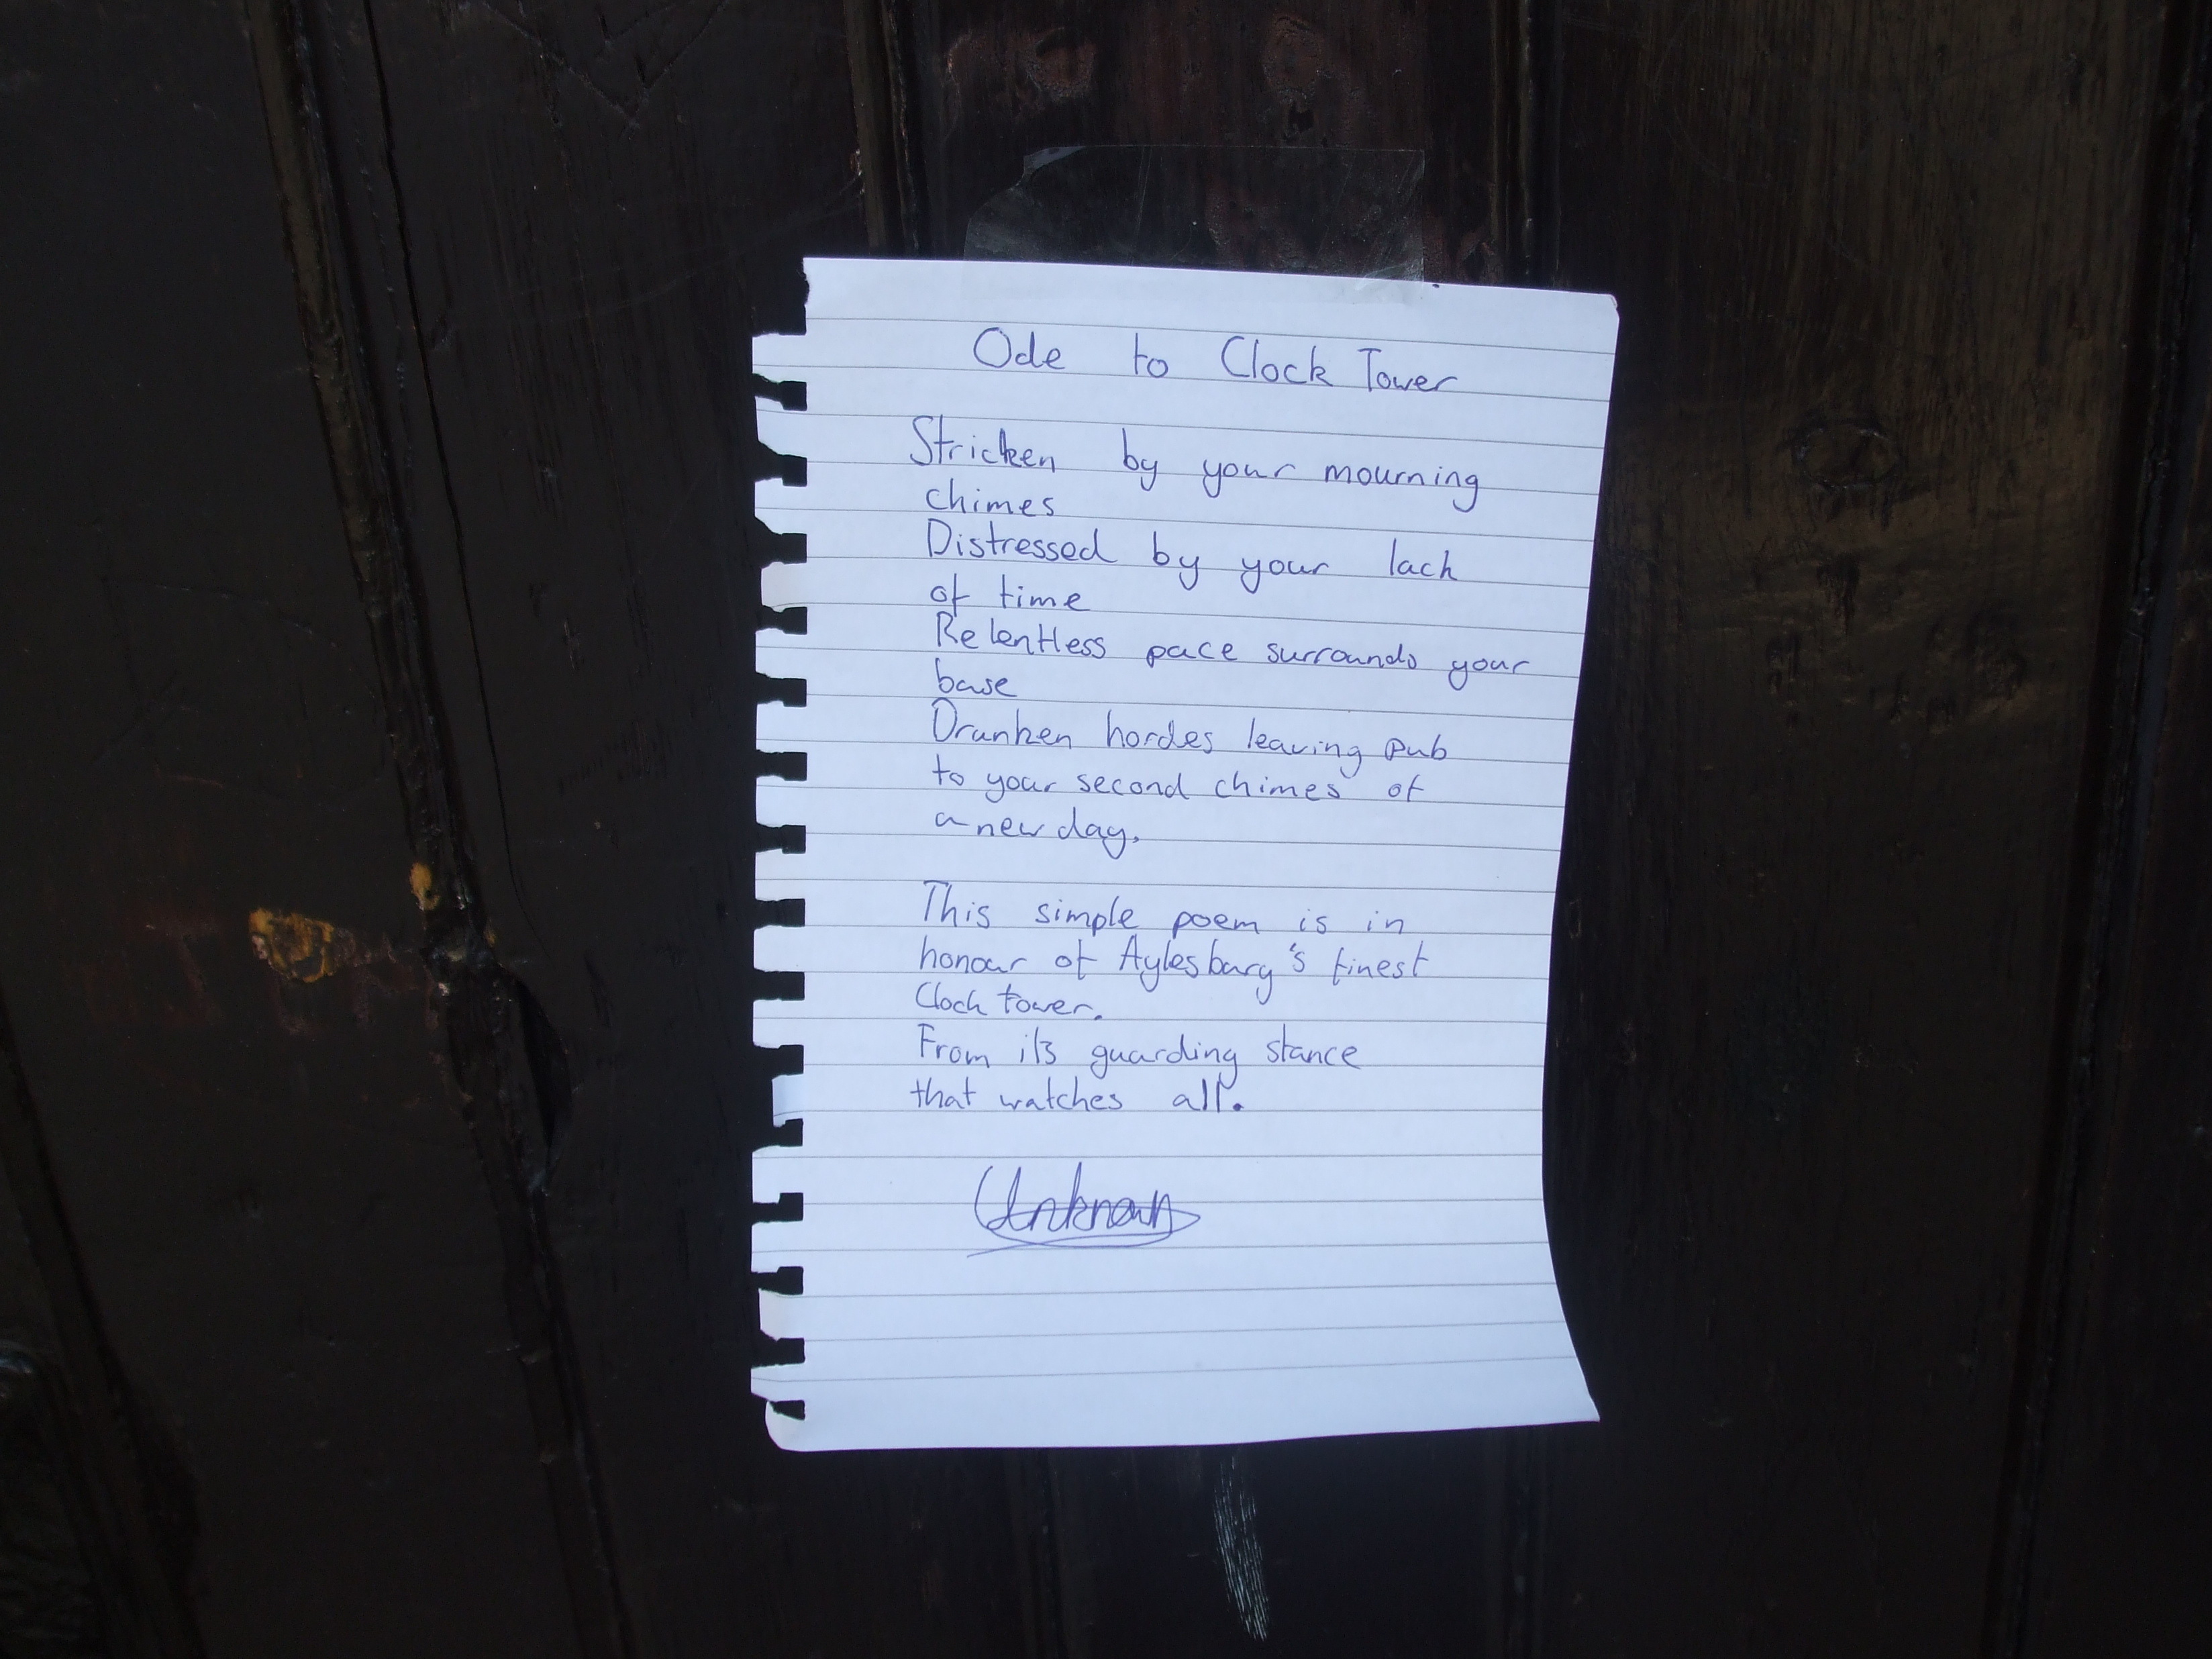 Ode to Clock Tower
Stricken by your mourning
chimes
Distressed by your lack
of time
Relentless pace surrounds your
base
Drunken hordes leaving pub
to your second chimes of
a new day.
This simple poem is in
honour of Aylesbury's finest
Clock tower.
From its guarding stance
that watches all.
Unknown